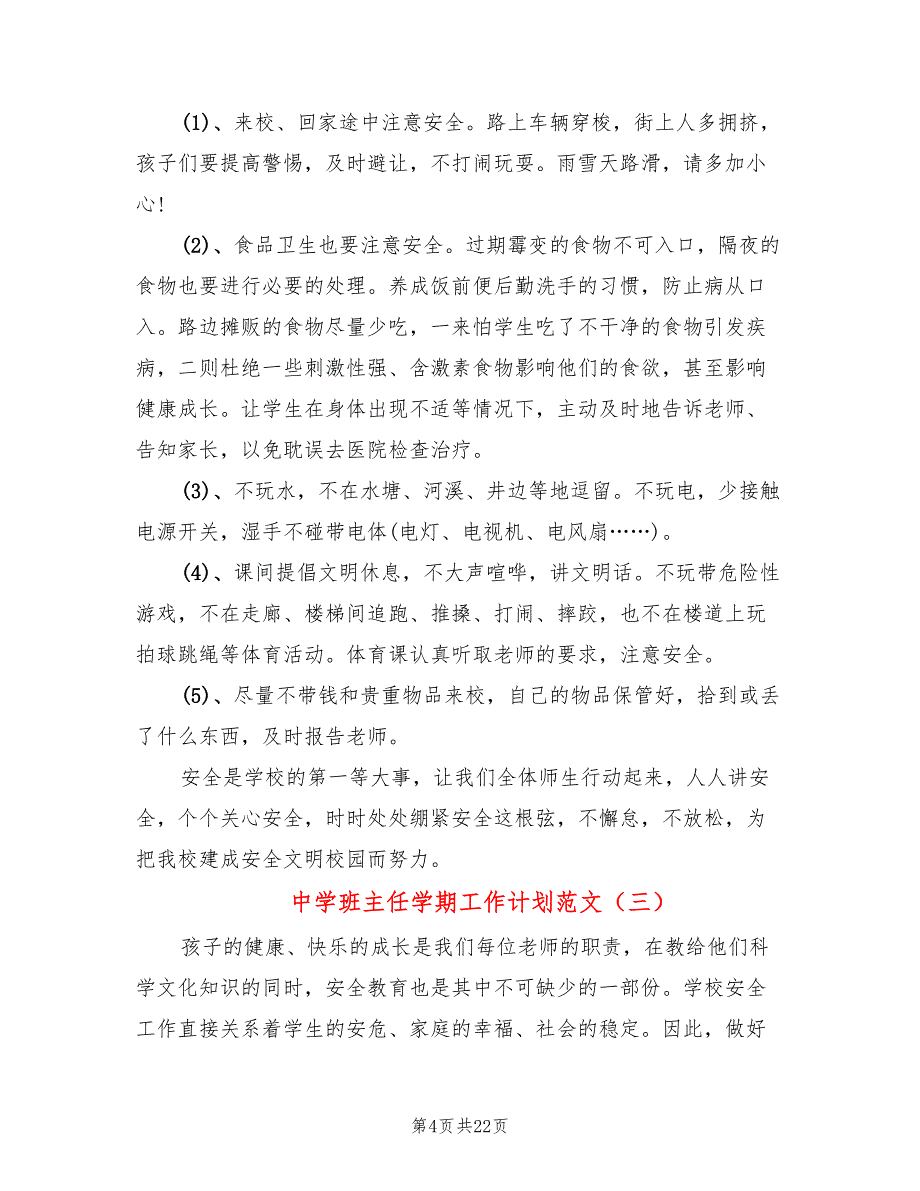 (1)、来校、回家途中注意安全。路上车辆穿梭，街上人多拥挤，
孩子们要提高警惕，及时避让，不打闹玩耍。雨雪天路滑，请多加小
心!
(2)、食品卫生也要注意安全。过期霉变的食物不可入口，隔夜的
食物也要进行必要的处理。养成饭前便后勤洗手的习惯，防止病从口
入。路边摊贩的食物尽量少吃，一来怕学生吃了不干净的食物引发疾
病，二则杜绝一些刺激性强、含激素食物影响他们的食欲，甚至影响
健康成长。让学生在身体出现不适等情况下，主动及时地告诉老师、
告知家长，以免耽误去医院检查治疗。
(3)、不玩水，不在水塘、河溪、井边等地逗留。不玩电，少接触
电源开关，湿手不碰带电体(电灯、电视机、电风扇……)。
(4)、课间提倡文明休息，不大声喧哗，讲文明话。不玩带危险性
游戏，不在走廊、楼梯间追跑、推搡、打闹、摔跤，也不在楼道上玩
拍球跳绳等体育活动。体育课认真听取老师的要求，注意安全。
(5)、尽量不带钱和贵重物品来校，自己的物品保管好，拾到或丢
了什么东西，及时报告老师。
安全是学校的第一等大事，让我们全体师生行动起来，人人讲安
全，个个关心安全，时时处处绷紧安全这根弦，不懈怠，不放松，为
把我校建成安全文明校园而努力。
中学班主任学期工作计划范文（三）
孩子的健康、快乐的成长是我们每位老师的职责，在教给他们科
学文化知识的同时，安全教育也是其中不可缺少的一部份。学校安全
工作直接关系着学生的安危、家庭的幸福、社会的稳定。因此，做好
第4页共22页